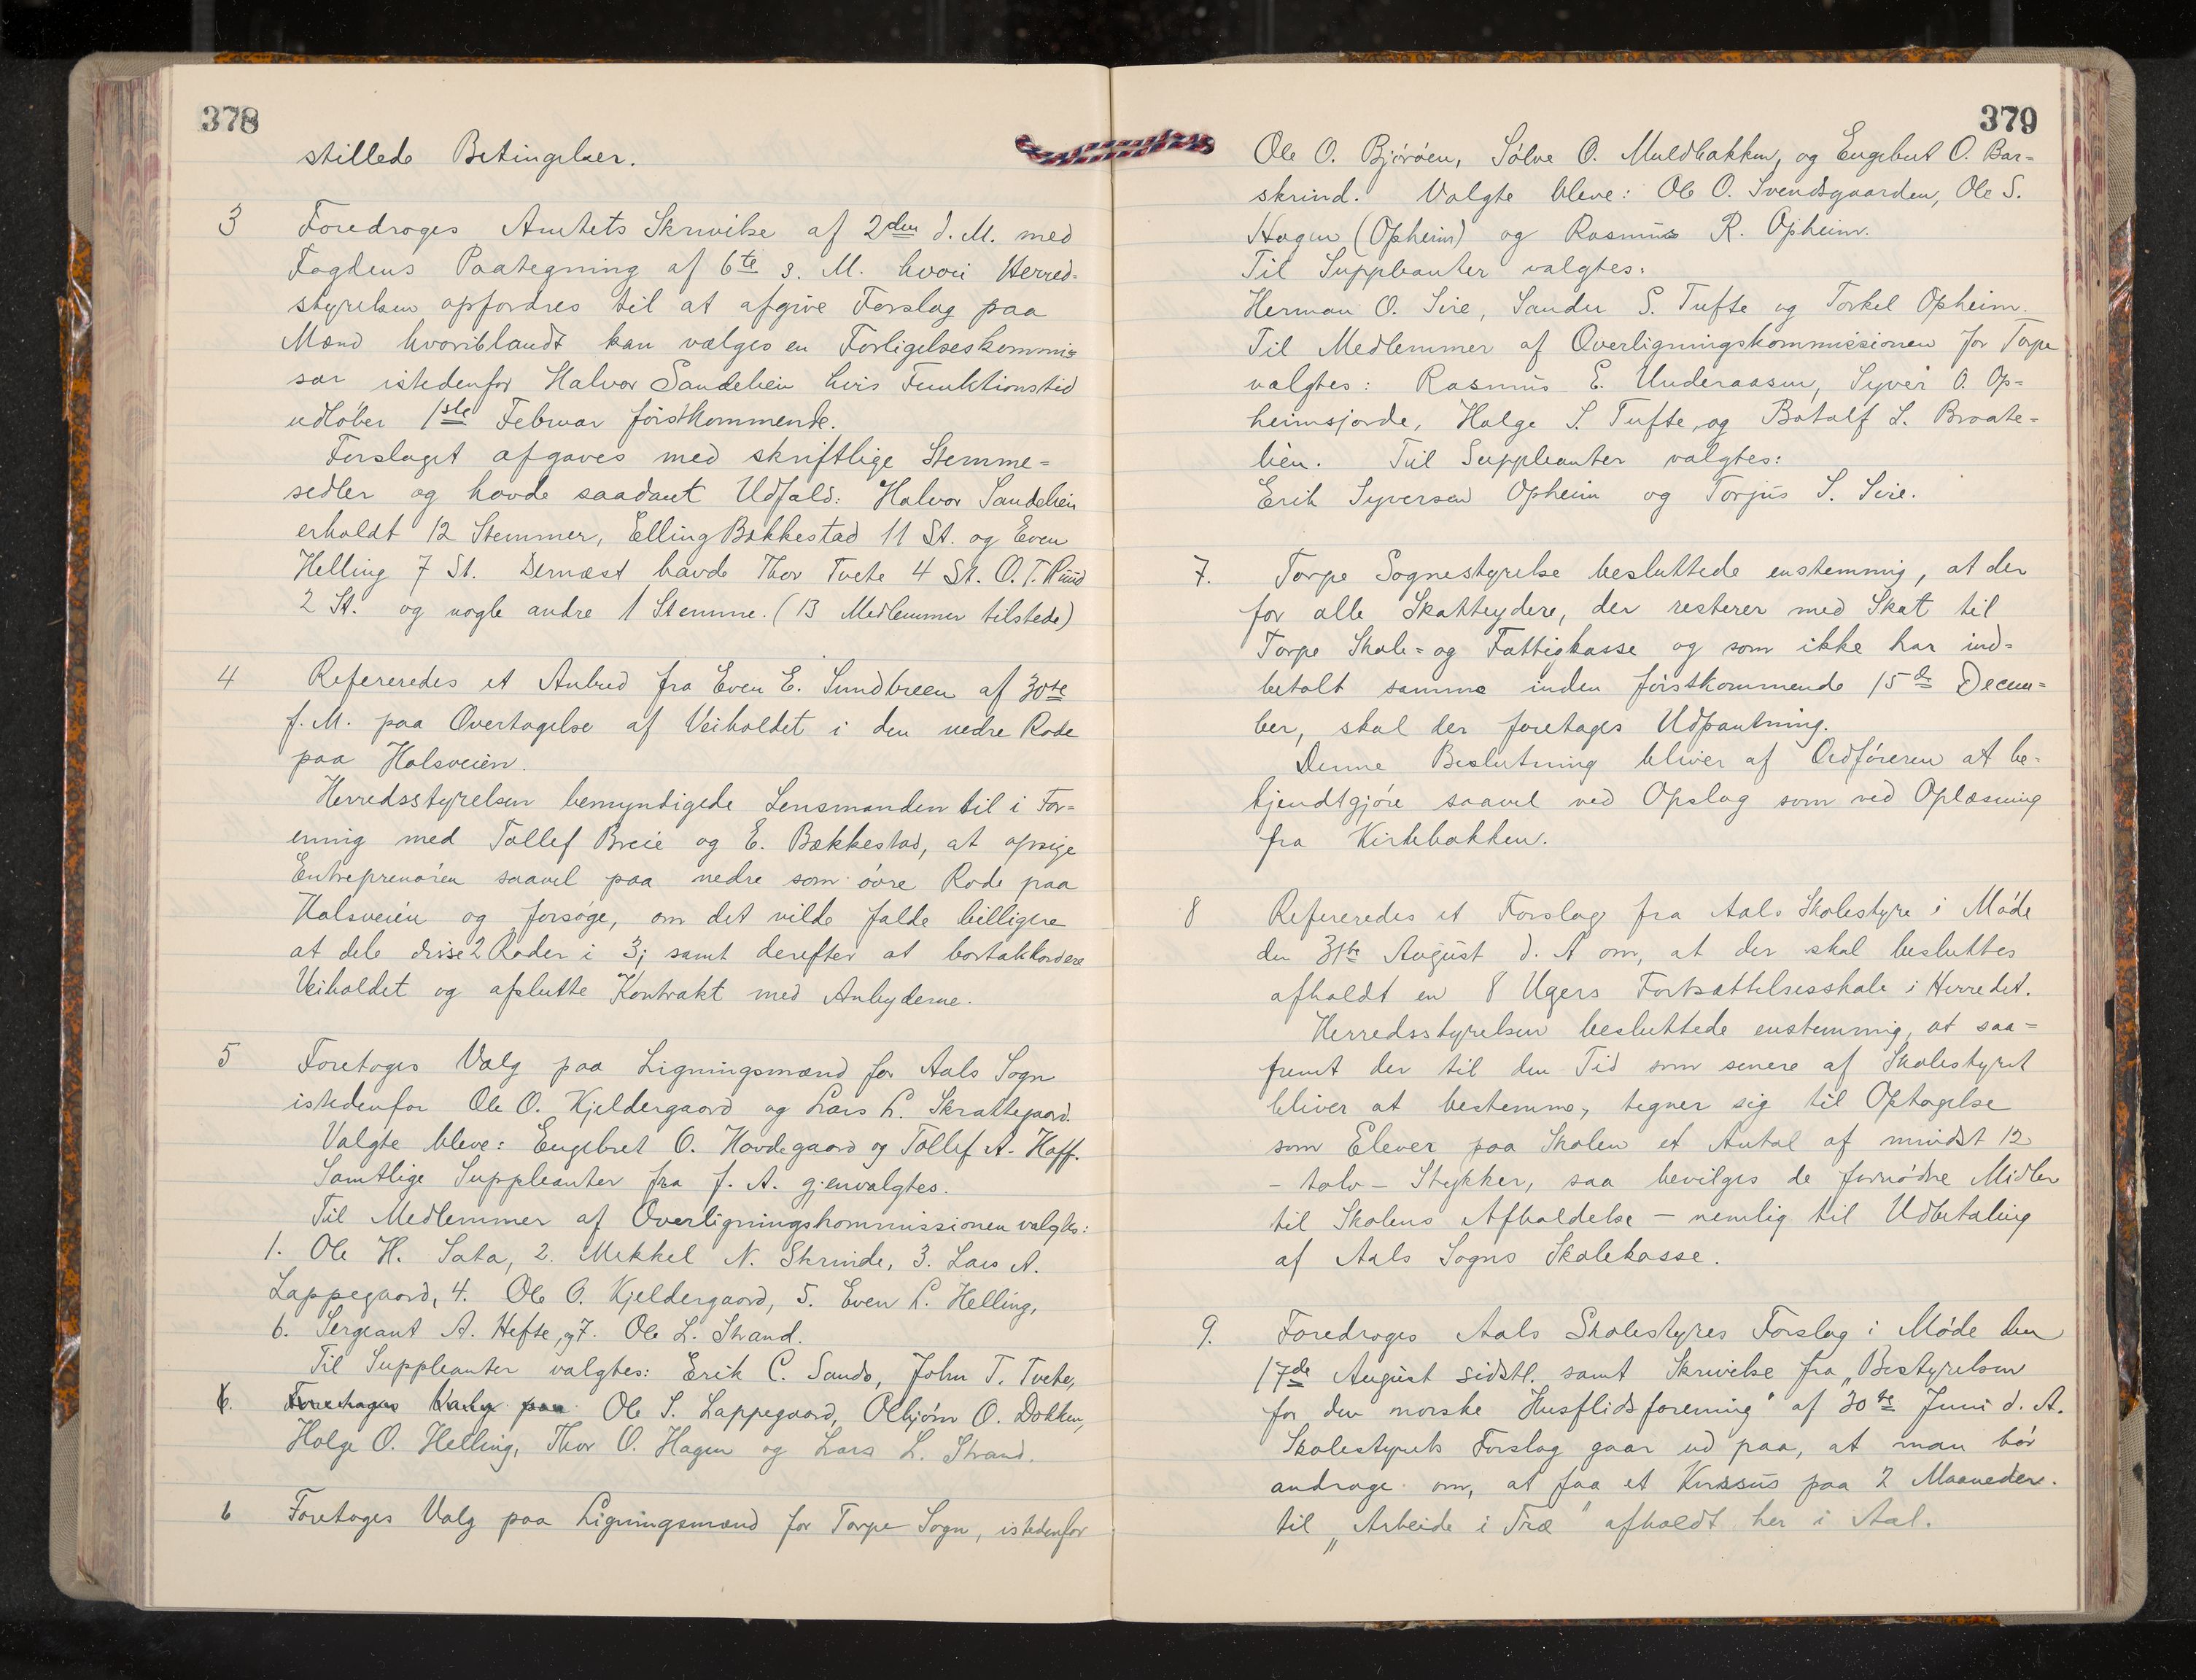 378
stillede Betingelser.
3 Foredroges Amtets Skrivelse af 2den d. M. med
Fogdens Paategning af 6te s. M. hvori Herred=
styrelsen opfordres til at afgive Forslag paa
Mænd hvoriblandt kan vælges en Forligelseskommis
sær istedenfor Halvor Sandelien hvis Funktionstid
udløber 1ste Februar førstkommende.
Forslaget afgaves med skriftlige Stemme=
sedler og havde saadant Udfald: Halvor Sandelien
erholdt 12 Stemmer, Elling Bækkestad 11 St. og Even
Helling 7 St. Dernæst havde Thor Tvete 4 St. O. T. Ruud
2 St. og nogle andre 1 Stemme. (13 Medlemmer tilstede)
4 Refereredes et Anbud fra Even E. Sundbreen af 30te
f. M. paa Overtagelse af Veiholdet i den nedre Rode
paa Holsveien.
Herredsstyrelsen bemyndigede Lensmanden til i For=
ening med Tollef Breie og E. Bækkestad, at opsige
Entreprenøren saavel paa nedre som øvre Rode paa
Holsveien og forsøge, om det vilde falde billigere
at dele disse 2 Roder i 3; samt derefter at bortakkordere
Veiholdet og afslutte Kontrakt med Anbyderne.
5 Foretoges Valg paa Ligningsmænd for Aals Sogn
istedenfor Ole O. Kjeldergaard og Lars L. Skrattegaard.
Valgte bleve: Engebret O. Hovdegaard og Tollef A. Hoff.
Samtlige Suppleanter fra f. A. gjenvalgtes.
Til Medlemmer af Overligningskommissionen valgtes:
1. Ole H. Sata, 2. Mekkel N. Skrinde, 3. Lars A.
Lappegaard, 4. Ole O. Kjeldergaard, 5. Even L. Helling,
6. Sergeant A. Hefte, og 7. Ole L. Strand.
Til Suppleanter valgtes: Erik C. Sando, John T. Tvete,
6. Foretoges Valg paa Ole S. Lappegaard, Olbjørn O. Dokken,
Holge O. Helling, Thor O. Hagen og Lars L. Strand.
6 Foretoges Valg paa Ligningsmænd for Torpe Sogn, istedenfor
379
Ole O. Bjørøen, Sølve O. Muldbakken, og Engebret O. Bar=
skrind. Valgte bleve: Ole O. Svendsgaarden, Ole S.
Hagen (Opheim) og Rasmus R. Opheim.
Til Suppleanter valgtes:
Herman O. Sire, Sander S. Tufte og Torkel Opheim.
Til Medlemmer af Overligningskommissionen for Torpe
valgtes: Rasmus E. Underaasen, Syver O. Op=
heimsjorde, Holge S. Tufte, og Botolf L. Braate=
lien. Til Suppleanter valgtes:
Erik Syversen Opheim og Torjus S. Sire.
7. Torpe Sognestyrelse besluttede enstemmig, at der
for alle Skatteydere, der resterer med Skat til
Torpe Skole= og Fattigkasse og som ikke har ind=
betalt samme inden førstkommende 15de Decem=
ber, skal der foretages Udpantning.
Denne Beslutning bliver af Ordføreren at be=
kjendtgjøre saavel ved Opslag som ved Oplæsning
fra Kirkebakken.
8 Refereredes et Forslag fra Aals Skolestyre i Møde
den 31te August d. A om, at der skal besluttes
afholdt en 8 Ugers Fortsættelsesskole i Herredet.
Herredsstyrelsen besluttede enstemmig, at saa=
fremt der til den Tid som senere af Skolestyret
bliver at bestemme, tegner sig til Optagelse
som Elever paa Skolen et Antal af mindst 12
- tolv - Stykker, saa bevilges de fornødne Midler
til Skolens Afholdelse - nemlig til Udbetaling
af Aals Sogns Skolekasse.
9. Foredroges Aals Skolestyres Forslag i Møde den
17de August sidstl. samt Skrivelse fra „Bestyrelsen
for den norske Husflidsforening" af 30te Juni d. A.
Skolestyrets Forslag gaar ud paa, at man bør
andrage om, at faa et Kursus paa 2 Maaneder.
til „Arbeide i Træ" afholdt her i Aal.